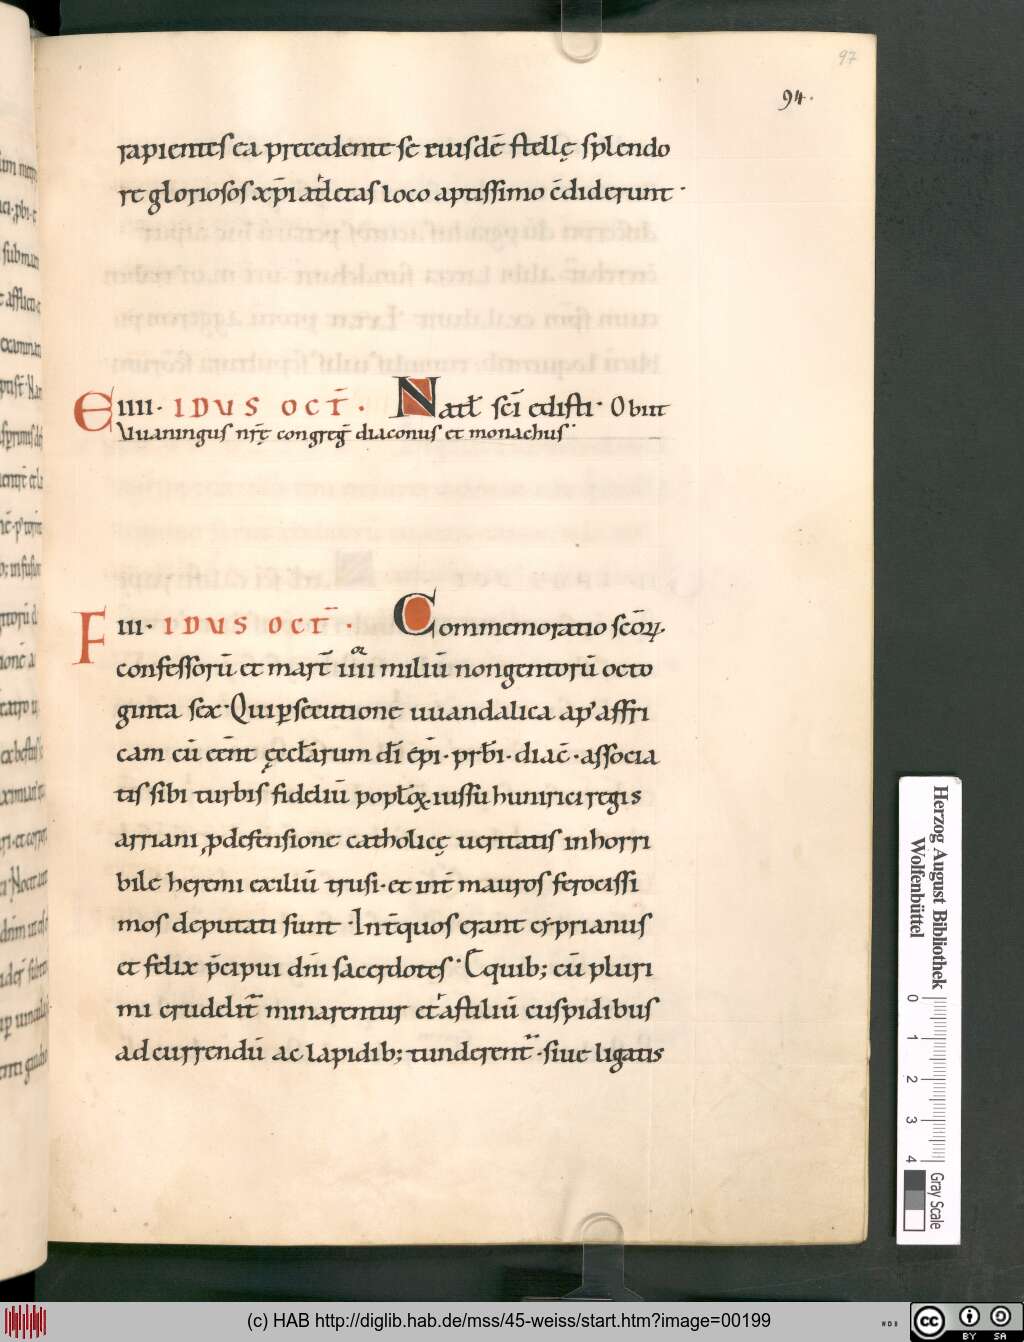 97
94.
rapientes ea precedente se eiusdē stellę splendo
re gloriosos xp̄i athletas loco aptissimo c̄diderunt·
E IIII· IDUS OCT̄· Natł sc̄i edisti· Obiit
Vuaningus nr̄ę congreḡ diaconus et monachus·
F III· IDUS OCT̄· Commemoratio sc̄oꝝ
confessorū et mart̄ iiii miliū nongentorū octo
ginta sex· Qui ꝑsecutione uuandalica ap' affri
cam cū eēnt ęcclārum dī ep̄i· prb̄i· diac̄· associa
tis sibi turbis fideliū popłoꝝ, iussu hunirici regis
arriani, ꝓ defensione catholicę ueritatis in horri
bile heremi exiliū trusi· et int̄ mauros ferocissi
mos deputati sunt· Int̄ quos erant cyprianus
et felix p̄cipui dn̄i sacerdotes· E quib; cū pluri
mi crudelit̄ minarentur et astiliū cuspidibus
ad currendū ac lapidib; tunderent̄· siue ligatis
Herzog August Bibliothek
Wolfenbüttel
0 1 2 3 4
Gray Scale
(c) HAB http://diglib.hab.de/mss/45-weiss/start.htm?image=00199
cc BY SA